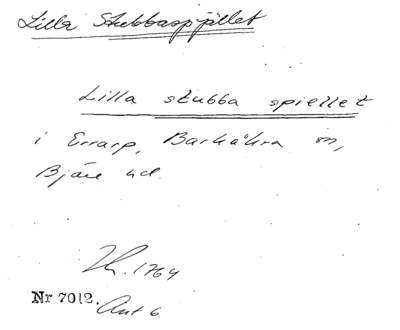 Lilla Stubbaspjället
Lilla stubba spiellet
i Errarp, Barkåkra sn,
Bjäre hd.
1764
Nr 7012. Akt 6.